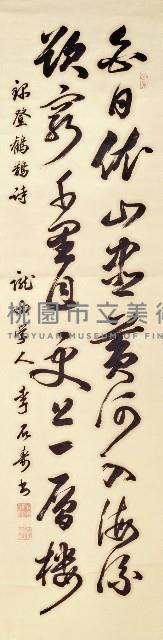 白日依山盡黃河入海流
欲窮千里目更上一層樓
錄登鸛鵲詩
李石壽書
桃園市立美術
TAOYUAN MUSEUM OF FINE